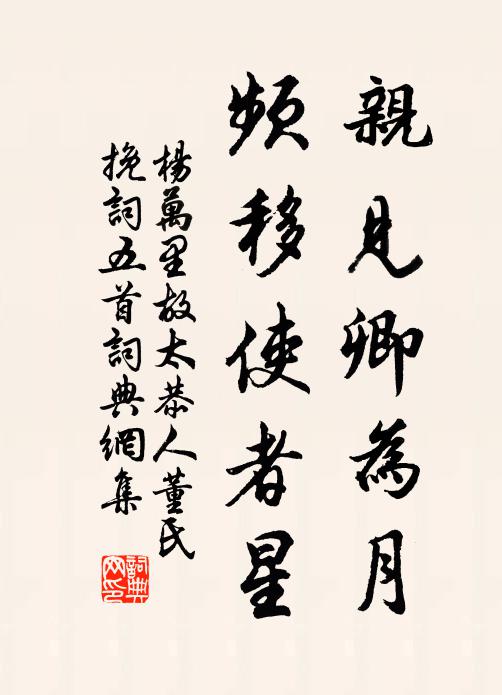 親見卿為月
頻移使者星
楊萬里故太恭人董氏
挽詞五首詞典網集
詞典網印